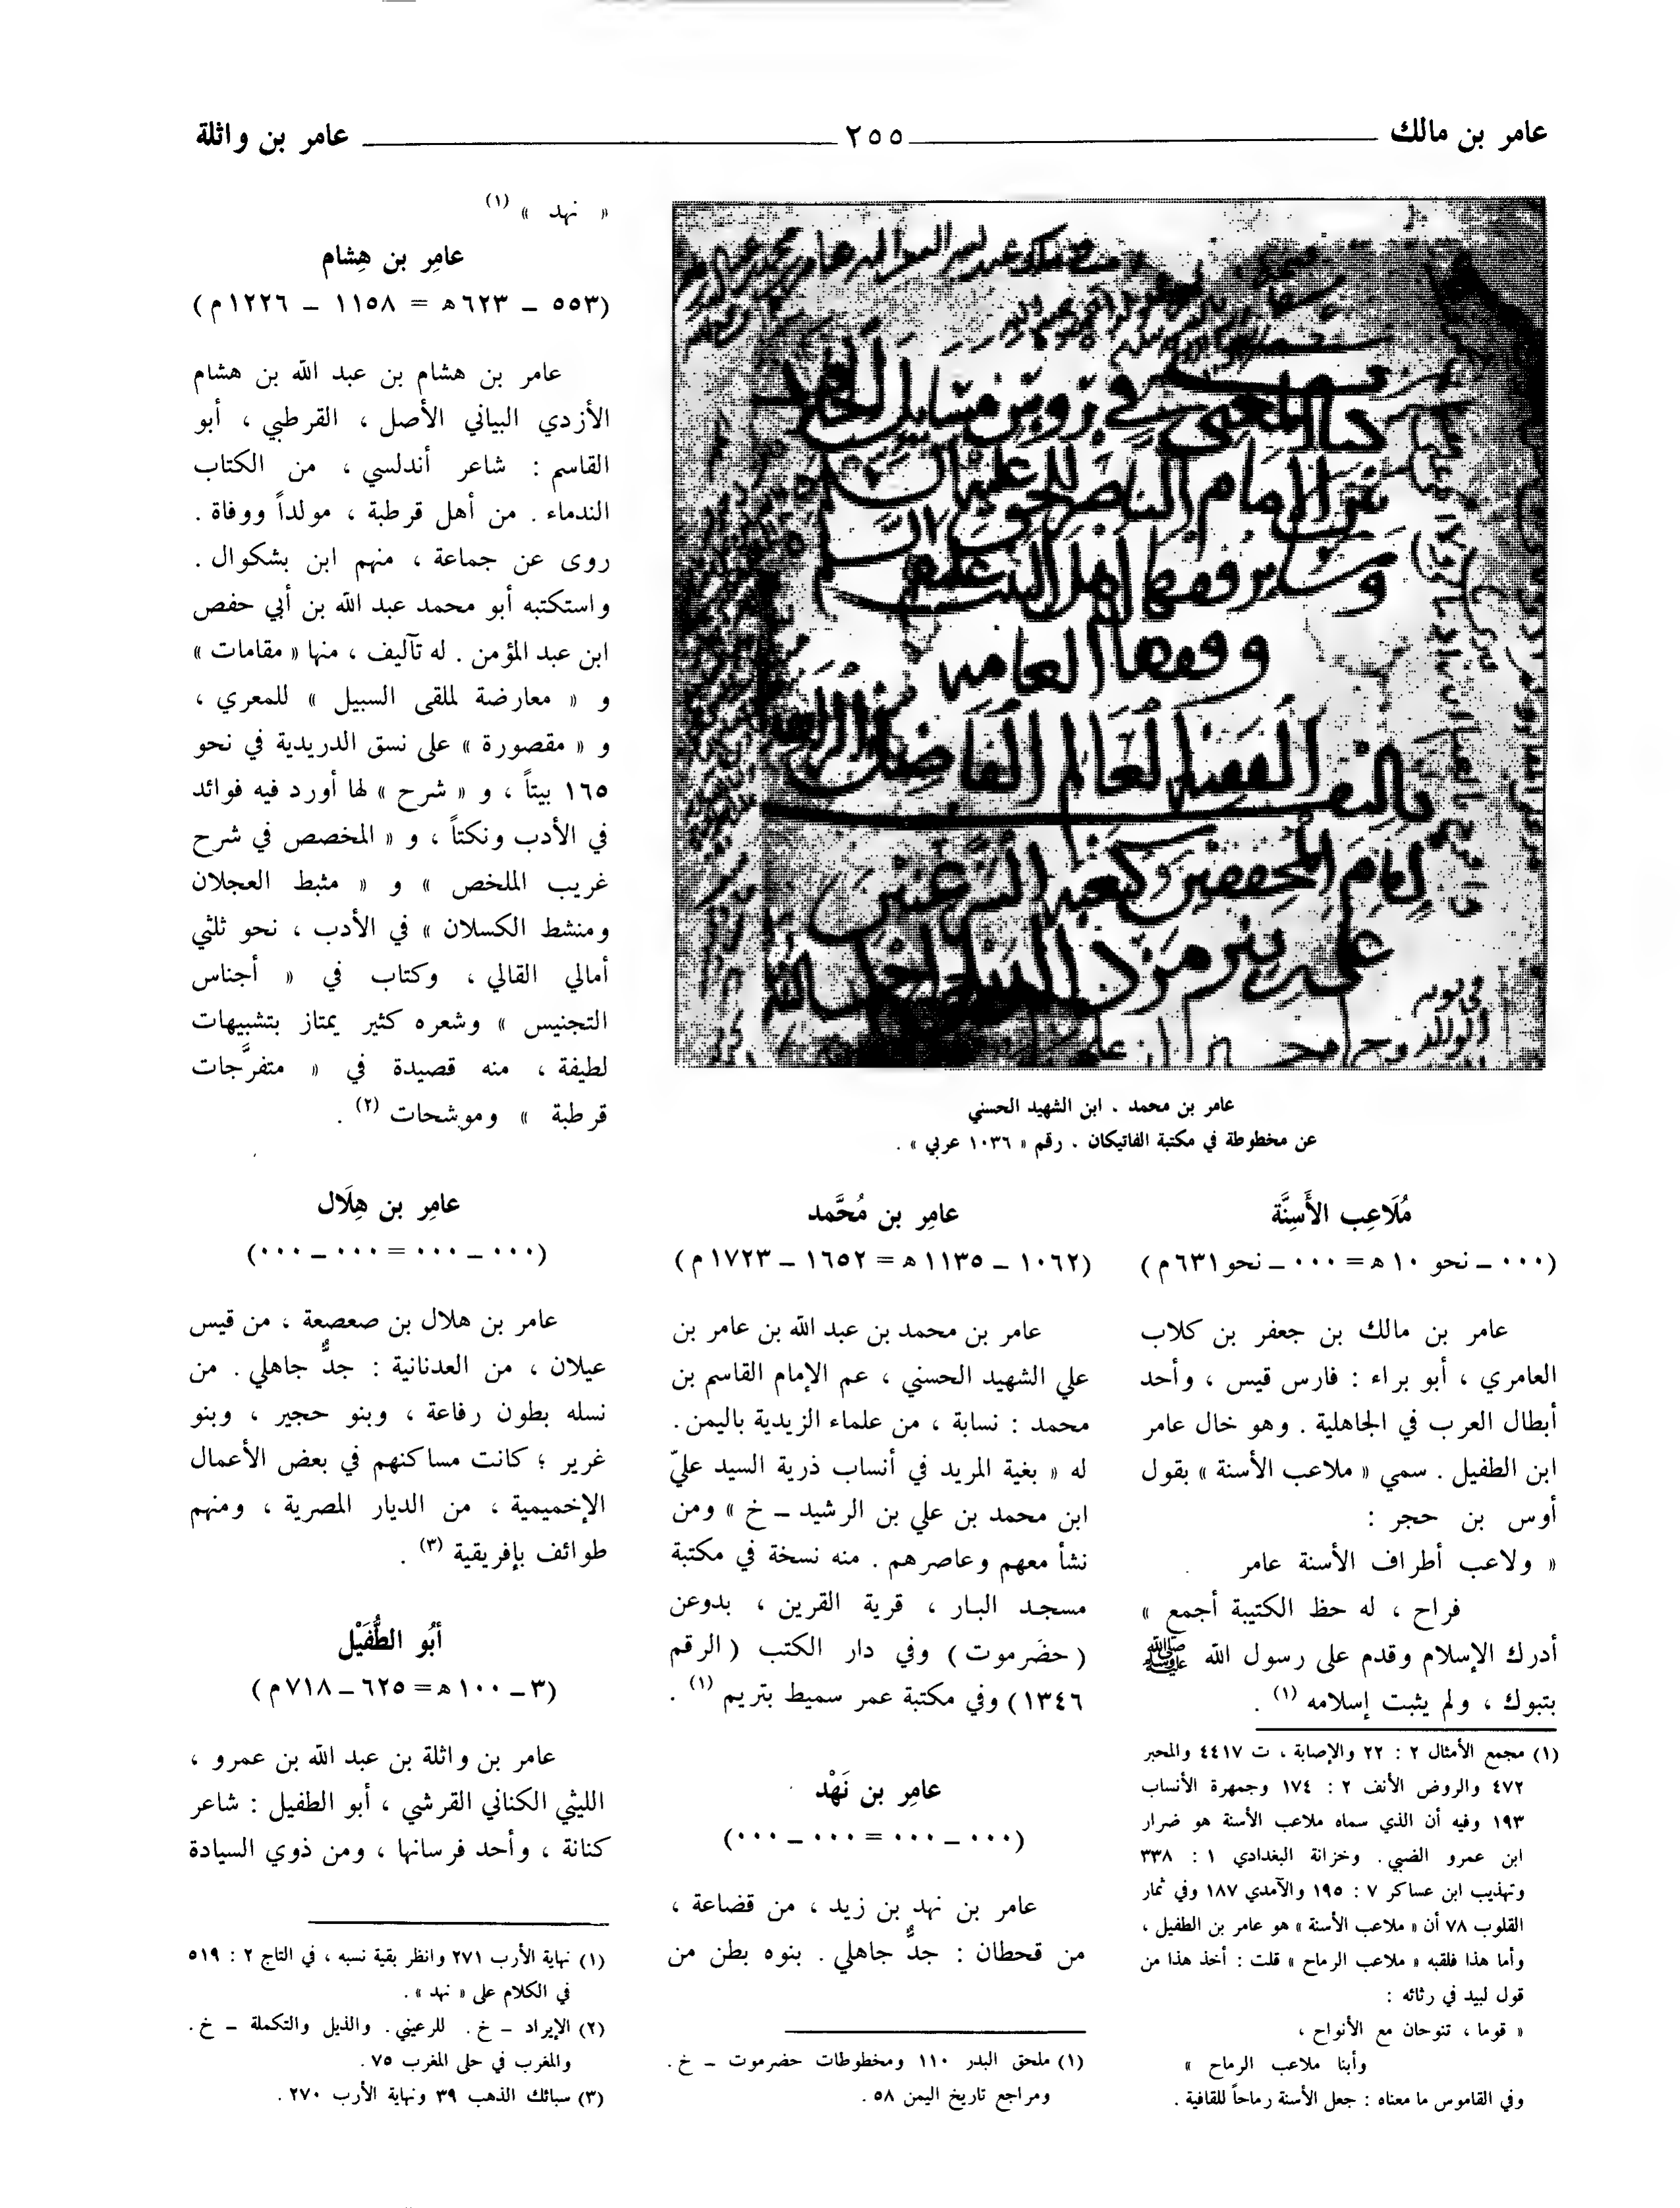 عامر بن مالك ٢٥٥ عامر بن واثلة
عامر بن محمد . ابن الشهيد الحسني
عن مخطوطة في مكتبة الفاتيكان . رقم « ١٠٣٦ عربي » .
مُلَاعِب الأَسِنَّة
(٠٠٠ ــ نحو ١٠ ه = ٠٠٠ ــ نحو ٦٣١ م)
عامر بن مالك بن جعفر بن كلاب
العامري ، أبو براء : فارس قيس ، وأحد
أبطال العرب في الجاهلية . وهو خال عامر
ابن الطفيل . سمي « ملاعب الأسنة » بقول
أوس بن حجر :
« ولاعب أطراف الأسنة عامر
فراح ، له حظ الكتيبة أجمع »
أدرك الإسلام وقدم على رسول الله ﷺ
بتبوك ، ولم يثبت إسلامه (١) .
(١) مجمع الأمثال ٢ : ٢٢ والإصابة ، ت ٤٤١٧ والمحبر
٤٧٢ والروض الأنف ٢ : ١٧٤ وجمهرة الأنساب
١٩٣ وفيه أن الذي سماه ملاعب الأسنة هو ضرار
ابن عمرو الضبي . وخزانة البغدادي ١ : ٣٣٨
وتهذيب ابن عساكر ٧ : ١٩٥ والآمدي ١٨٧ وفي ثمار
القلوب ٧٨ أن « ملاعب الأسنة » هو عامر بن الطفيل ،
وأما هذا فلقبه « ملاعب الرماح » قلت : أخذ هذا من
قول لبيد في رثائه :
« قوما ، تنوحان مع الأنواح ،
وأبنا ملاعب الرماح »
وفي القاموس ما معناه : جعل الأسنة رماحاً للقافية .
عامِر بن مُحَّمد
(١٠٦٢ ــ ١١٣٥ ه = ١٦٥٢ ــ ١٧٢٣ م)
عامر بن محمد بن عبد الله بن عامر بن
علي الشهيد الحسني ، عم الإمام القاسم بن
محمد : نسابة ، من علماء الزيدية باليمن .
له « بغية المريد في أنساب ذرية السيد عليّ
ابن محمد بن علي بن الرشيد ــ خ » ومن
نشأ معهم وعاصرهم . منه نسخة في مكتبة
مسجد البار ، قرية القرين ، بدوعن
(حضَرموت) وفي دار الكتب (الرقم
١٣٤٦) وفي مكتبة عمر سميط بتريم (١) .
عامِر بن نَهْد
(٠٠٠ ــ ٠٠٠ = ٠٠٠ ــ ٠٠٠)
عامر بن نهد بن زيد ، من قضاعة ،
من قحطان : جدٌّ جاهلي . بنوه بطن من
(١) ملحق البدر ١١٠ ومخطوطات حضرموت ــ خ .
ومراجع تاريخ اليمن ٥٨ .
« نهد » (١)
عامِر بن هِشام
(٥٥٣ ــ ٦٢٣ ه = ١١٥٨ ــ ١٢٢٦ م)
عامر بن هشام بن عبد الله بن هشام
الأزدي البياني الأصل ، القرطبي ، أبو
القاسم : شاعر أندلسي ، من الكتاب
الندماء . من أهل قرطبة ، مولداً ووفاة .
روى عن جماعة ، منهم ابن بشكوال .
واستكتبه أبو محمد عبد الله بن أبي حفص
ابن عبد المؤمن . له تآليف ، منها « مقامات »
و « معارضة لملقى السبيل » للمعري ،
و « مقصورة » على نسق الدريدية في نحو
١٦٥ بيتاً ، و « شرح » لها أورد فيه فوائد
في الأدب ونكتاً ، و « المخصص في شرح
غريب الملخص » و « مثبط العجلان
ومنشط الكسلان » في الأدب ، نحو ثلثي
أمالي القالي ، وكتاب في « أجناس
التجنيس » وشعره كثير يمتاز بتشبيهات
لطيفة ، منه قصيدة في « متفرَّجات
قرطبة » وموشحات (٢) .
عامِر بن هِلَال
(٠٠٠ ــ ٠٠٠ = ٠٠٠ ــ ٠٠٠)
عامر بن هلال بن صعصعة ، من قيس
عيلان ، من العدنانية : جدٌّ جاهلي . من
نسله بطون رفاعة ، وبنو حجير ، وبنو
غرير ؛ كانت مساكنهم في بعض الأعمال
الإخميمية ، من الديار المصرية ، ومنهم
طوائف بإفريقية (٣) .
أبُو الطُّفَيْل
(٣ ــ ١٠٠ ه = ٦٢٥ ــ ٧١٨ م)
عامر بن واثلة بن عبد الله بن عمرو ،
الليثي الكناني القرشي ، أبو الطفيل : شاعر
كنانة ، وأحد فرسانها ، ومن ذوي السيادة
(١) نهاية الأرب ٢٧١ وانظر بقية نسبه ، في التاج ٢ : ٥١٩
في الكلام على « نهد » .
(٢) الإيراد ــ خ . للرعيني . والذيل والتكملة ــ خ .
والمغرب في حلى المغرب ٧٥ .
(٣) سبائك الذهب ٣٩ ونهاية الأرب ٢٧٠ .